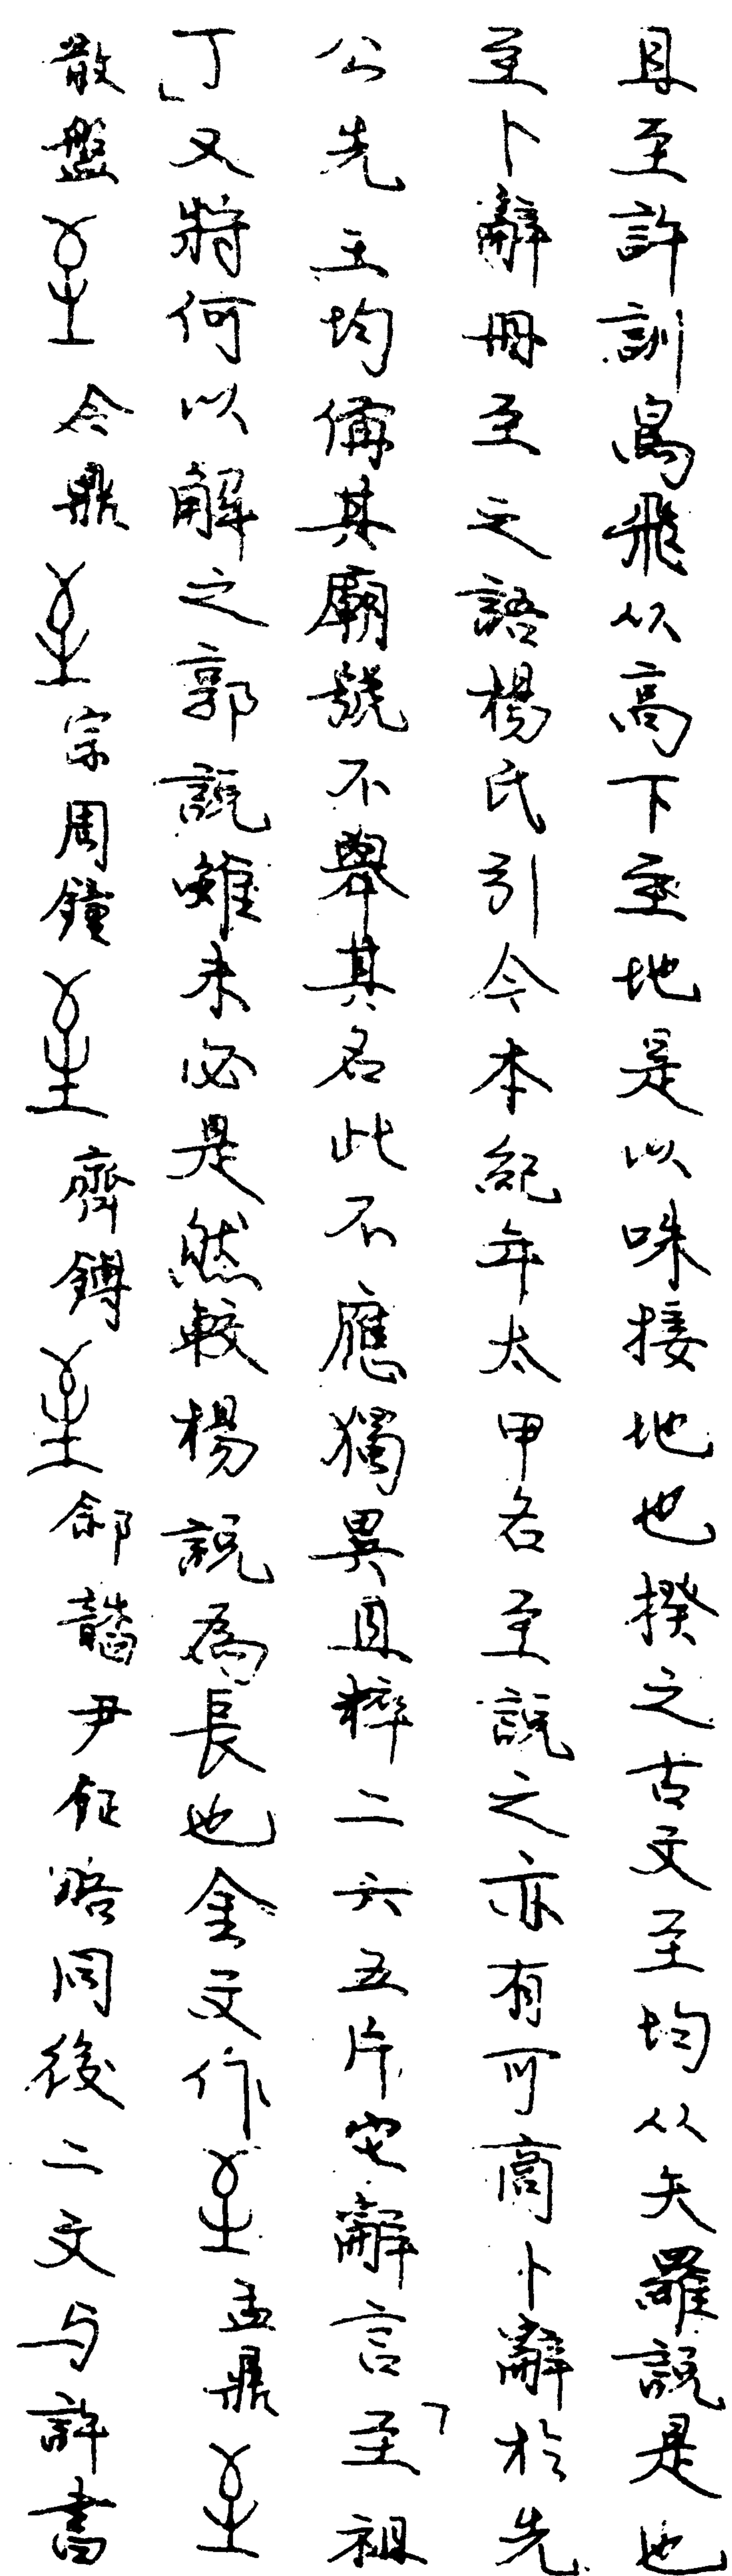 且至許訓鳥飛从高下至地是以咮接地也揆之古文至均从矢羅說是也
至卜辭冊至之語楊氏引今本紀年太甲名至說之亦有可商卜辭於先
公先王均備其廟號不舉其名此不應獨異且粹二六五片它辭言「至祖
丁」又將何以解之郭說雖未必是然較楊說為長也金文作盂鼎
散盤令鼎宗周鐘齊鎛䣄尹鉦略同後二文与許書